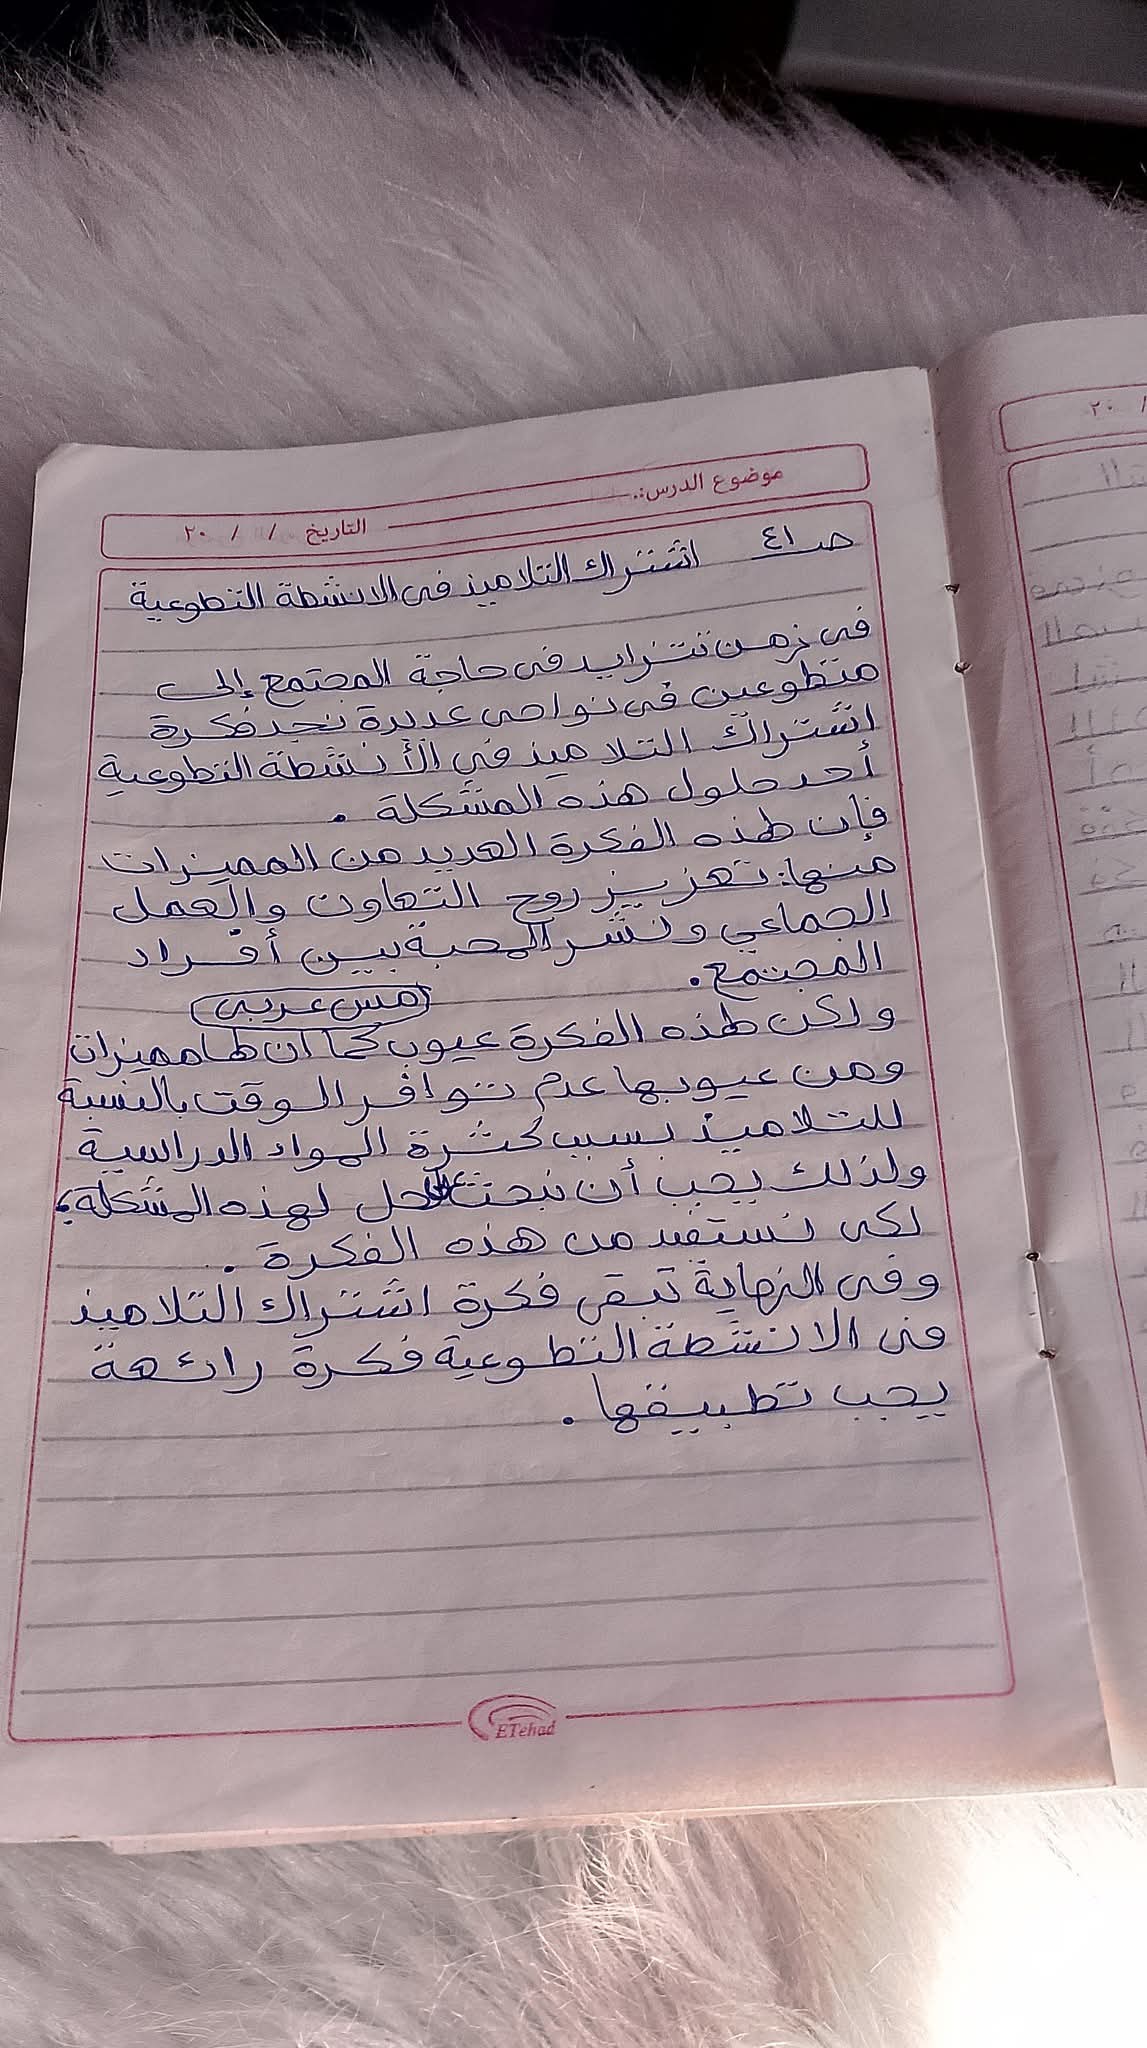 موضوع الدرس:
التاريخ / / ٢٠
صـ ٤١ اشتراك التلاميذ فى الانشطة التطوعية
فى زمن تتزايد فى حاجة المجتمع إلى
متطوعين فى نواحى عديدة نجد فكرة
اشتراك التلاميذ في الأنشطة التطوعية
أحد حلول هذه المشكلة .
فإن لهذه الفكرة العديد من المميزات
منها: تعزيز روح التعاون والعمل
الجماعي ونشر المحبة بين أفراد
المجتمع.
مس عربى
ولكن لهذه الفكرة عيوب كما أن لها مميزات
ومن عيوبها عدم توافر الوقت بالنسبة
للتلاميذ بسبب كثرة المواد الدراسية
ولذلك يجب أن نبحث حل لهذه المشكلة،
لكى نستفيد من هذه الفكرة .
وفى النهاية تبقى فكرة اشتراك التلاميذ
فى الانشطة التطوعية فكرة رائعة
يجب تطبيقها .
ETehad
/ ٢٠